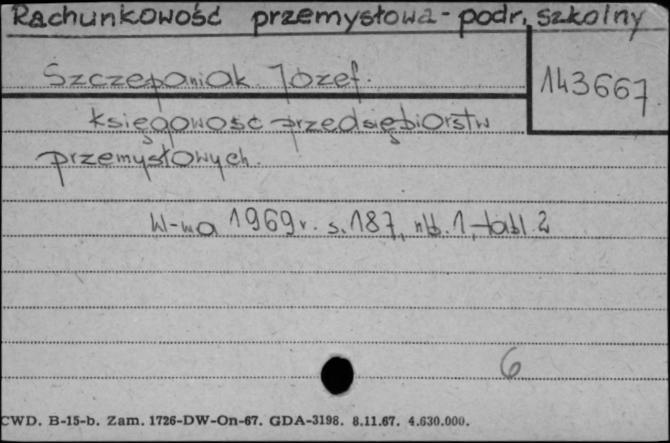 Rachunkowość przemysłowa - podr. szkolny
Szczepaniak Józef.
143667
Księgowość przedsiębiorstw
przemysłowych.
W-wa 1969 r. s. 187, nlb. 1, tabl. 2
6
CWD. B-15-b. Zam. 1726-DW-On-67. GDA-3198. 8.11.67. 4.630.000.